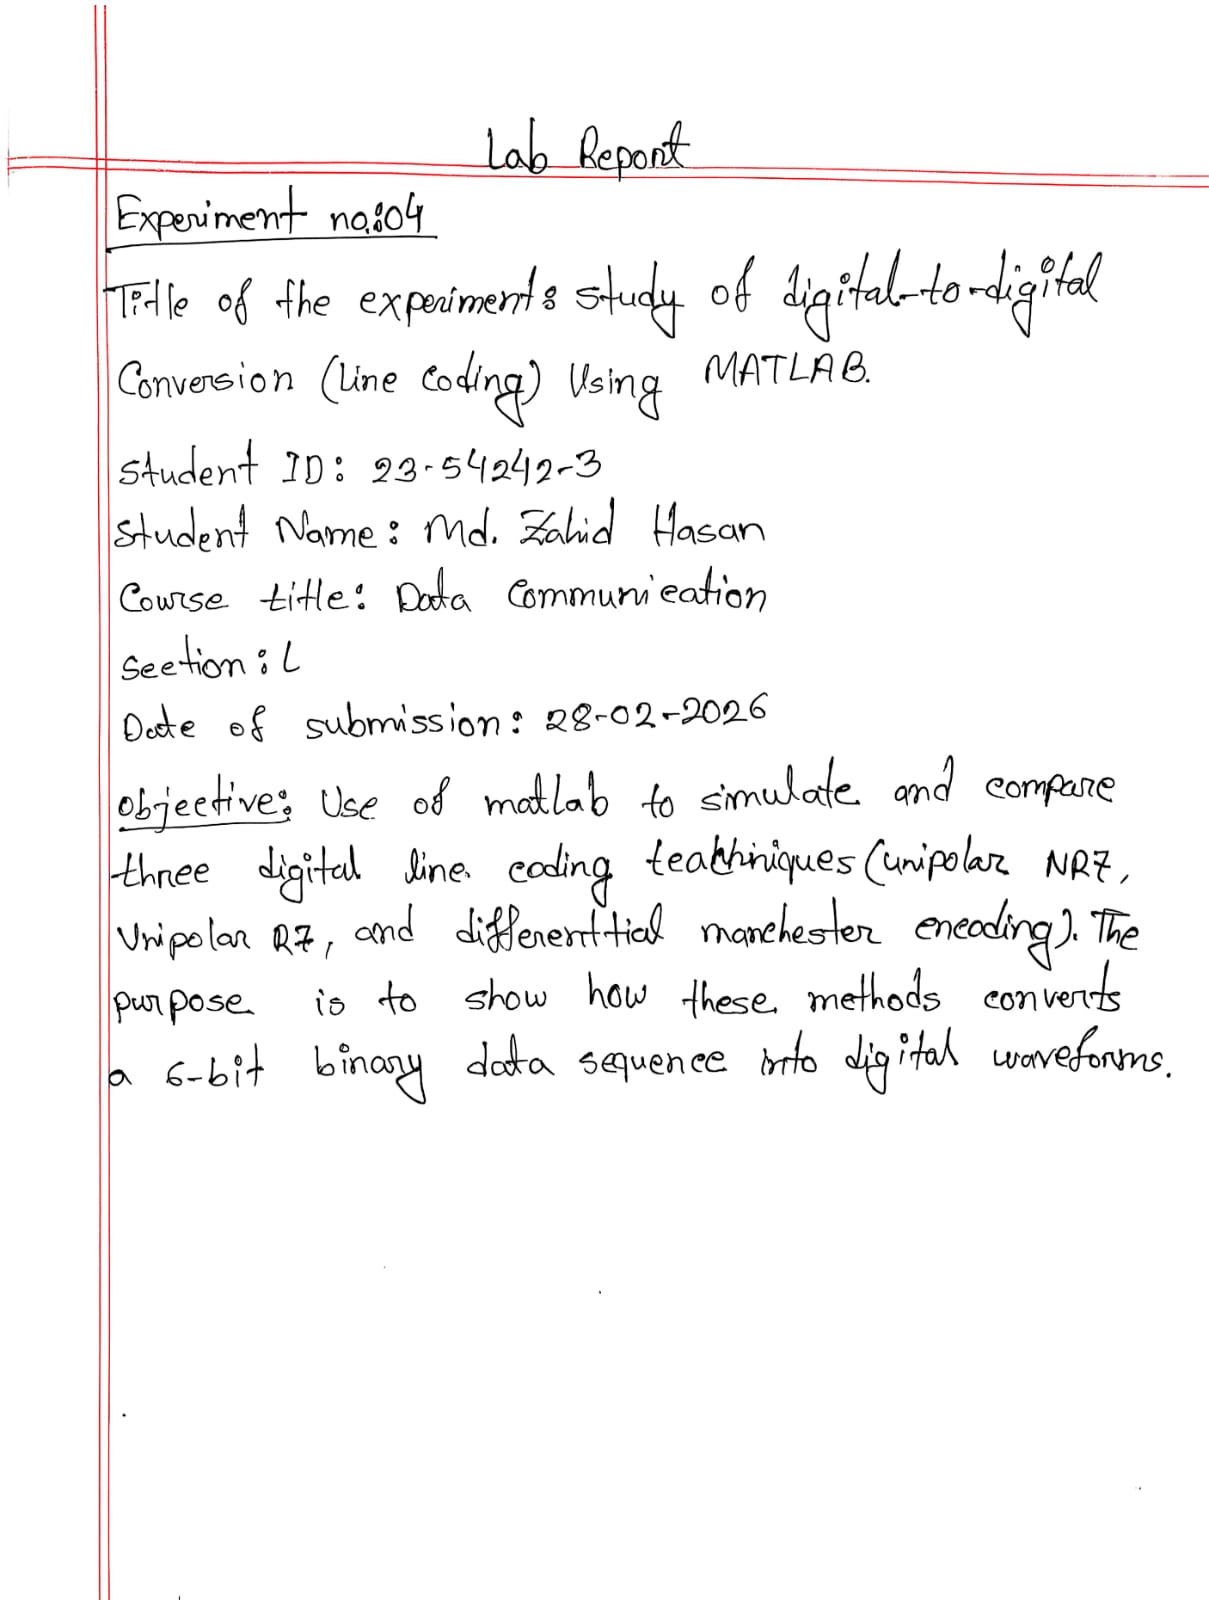 Lab Report
Experiment no:04
Title of the experiment: study of digital-to-digital
Conversion (Line Coding) Using MATLAB.
Student ID: 23-54242-3
Student Name: Md. Zahid Hasan
Course title: Data Communication
Section: L
Date of submission: 28-02-2026
Objective: Use of matlab to simulate and compare
three digital line coding teakhiniques (unipolar NRZ,
Unipolar RZ, and differenttial manchester encoding). The
purpose is to show how these methods converts
a 6-bit binary data sequence into digital waveforms.